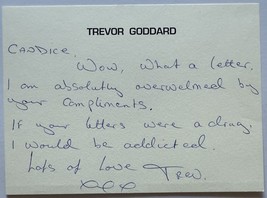 TREVOR GODDARD
CANDICE.
Wow, what a letter.
I am absolutly overwelmed by
your compliments.
If your letters were a drug,
I would be addicted.
Lots of Love Trev.
xxx